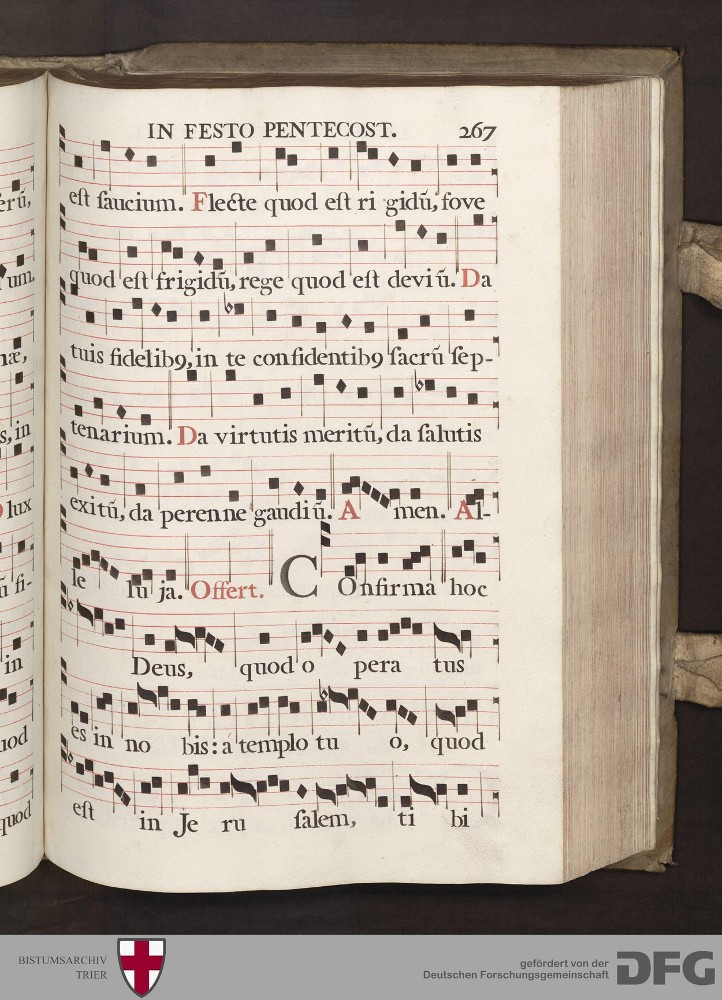 IN FESTO PENTECOST. 267
eſt ſaucium. Flecte quod eſt ri gidū, fove
quod eſt frigidū, rege quod eſt deviū. Da
tuis fidelibꝯ, in te confidentibꝯ ſacrū ſep-
tenarium. Da virtutis meritū, da ſalutis
exitū, da perenne gaudiū. A men. Al-
le lu ja. Offert. COnfirma hoc
Deus, quod o pera tus
es in no bis: á templo tu o, quod
eſt in Je ru ſalem, ti bi
um.
næ,
s, in
lux
ū fi-
in
uod
quod
BISTUMSARCHIV
TRIER
gefördert von der
Deutschen Forschungsgemeinschaft
DFG